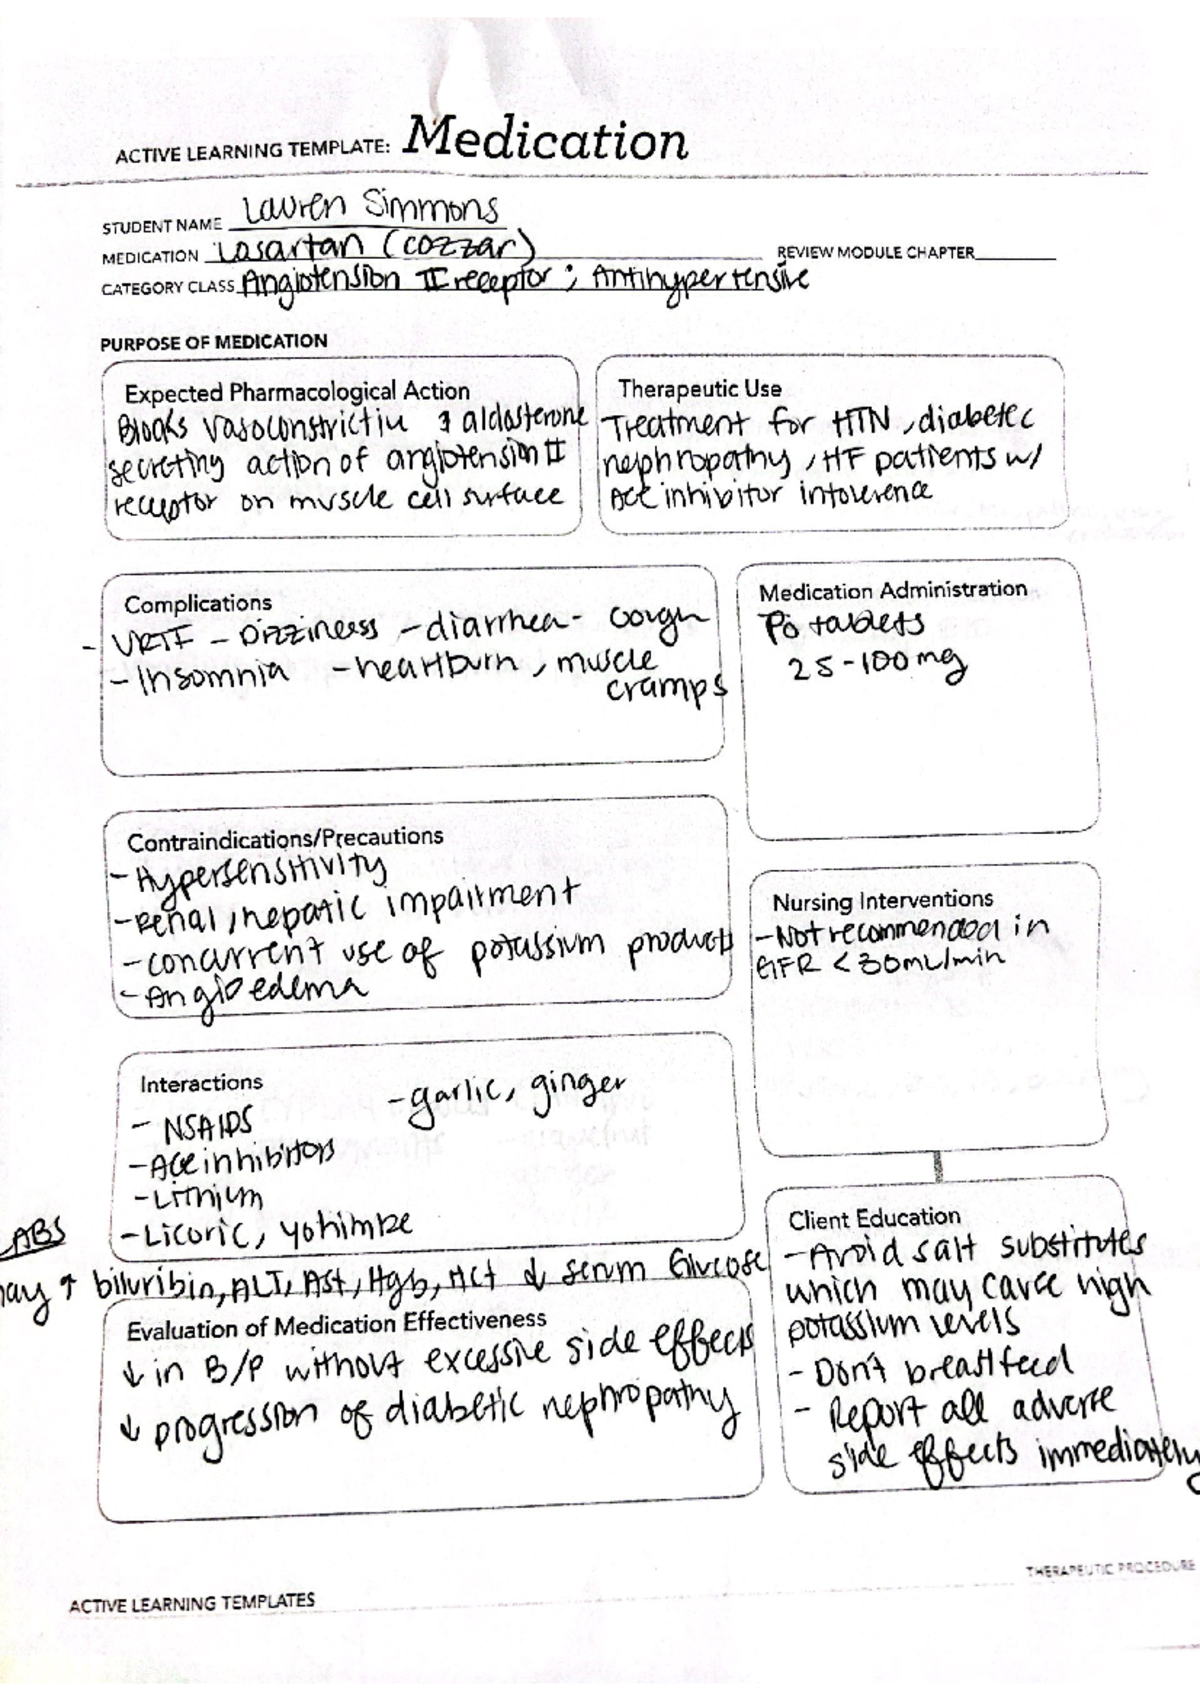 ACTIVE LEARNING TEMPLATE: Medication
STUDENT NAME Lauren Simmons
MEDICATION Losartan (cozzar) REVIEW MODULE CHAPTER
CATEGORY CLASS Angiotension II receptor ; Antihypertensive
PURPOSE OF MEDICATION
Expected Pharmacological Action
Blocks vasoconstrictiu & aldosterone
secreting action of angiotension II
receptor on muscle cell surface
Therapeutic Use
Treatment for HTN, diabetec
nephropathy, HF patients w/
Ace inhibitor intolerence
Complications
- URTF - Dizziness - diarrhea - cough
- Insomnia - heartburn, muscle
cramps
Medication Administration
Po tablets
25-100mg
Contraindications/Precautions
- Hypersensitivity
- Renal, hepatic impairment
- concurrent use of potassium products
- Angioedema
Nursing Interventions
- Not recommended in
GFR < 30mL/min
Interactions
- NSAIDS
- Ace inhibitors
- Lithium
- Licoric, yohimbe
- garlic, ginger
LABS
may ↑ biluribin, ALT, Ast, Hgb, Hct ↓ serum Glucose
Evaluation of Medication Effectiveness
↓ in B/P without excessive side effects
↓ progression of diabetic nephropathy
Client Education
- Avoid salt substitutes
which may cause high
potassium levels
- Don't breastfeed
- Report all adverse
side effects immediately
ACTIVE LEARNING TEMPLATES
THERAPEUTIC PROCEDURE